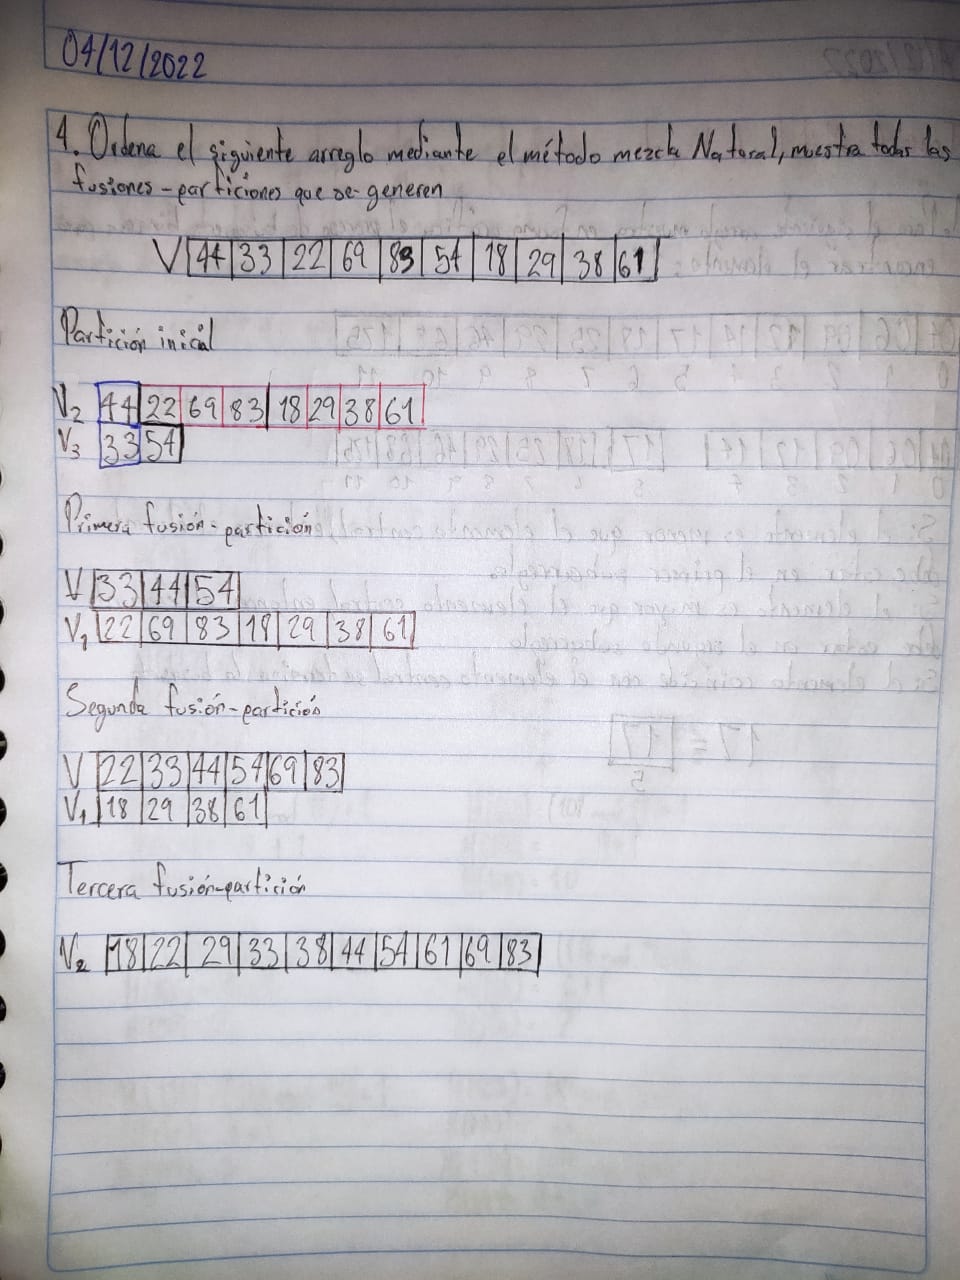 04/12/2022
4. Ordena el siguiente arreglo mediante el método mezcla Natural, muestra todas las
fusiones-particiones que se generen
V 44 33 22 69 83 54 18 29 38 61
Partición inicial
V2 44 22 69 83 18 29 38 61
V3 33 54
Primera fusión-partición
V 33 44 54
V1 22 69 83 18 29 38 61
Segunda fusión-partición
V 22 33 44 54 69 83
V1 18 29 38 61
Tercera fusión-partición
V2 18 22 29 33 38 44 54 61 69 83